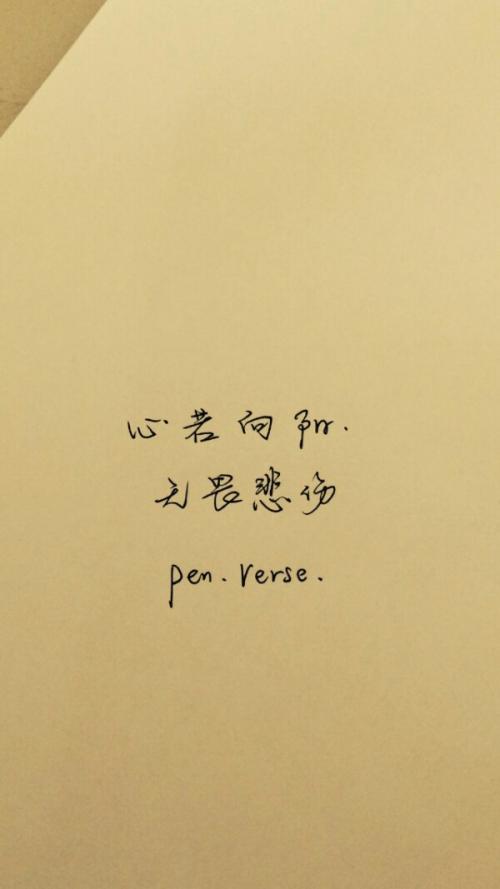 心若向阳.
无畏悲伤
pen.verse.